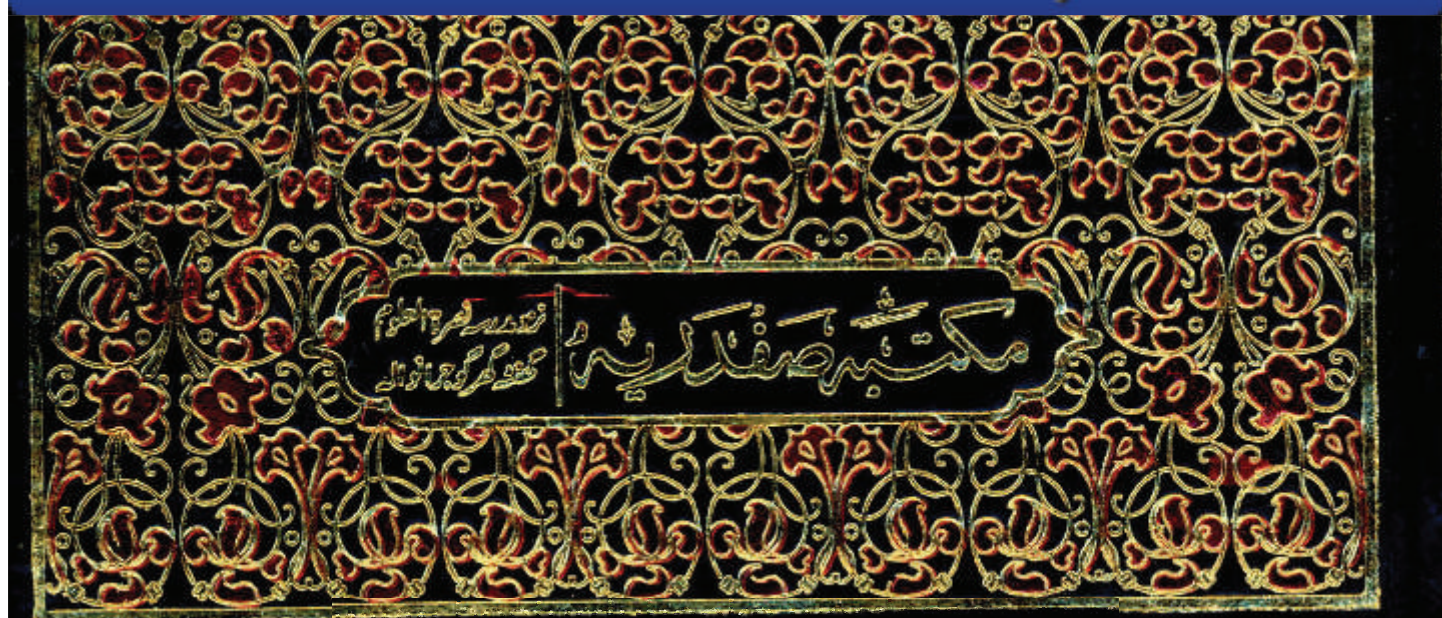 مکتبہ صفدریہ
نزد مدرسہ نصرۃ العلوم
گھنٹہ گھر گوجرانوالہ